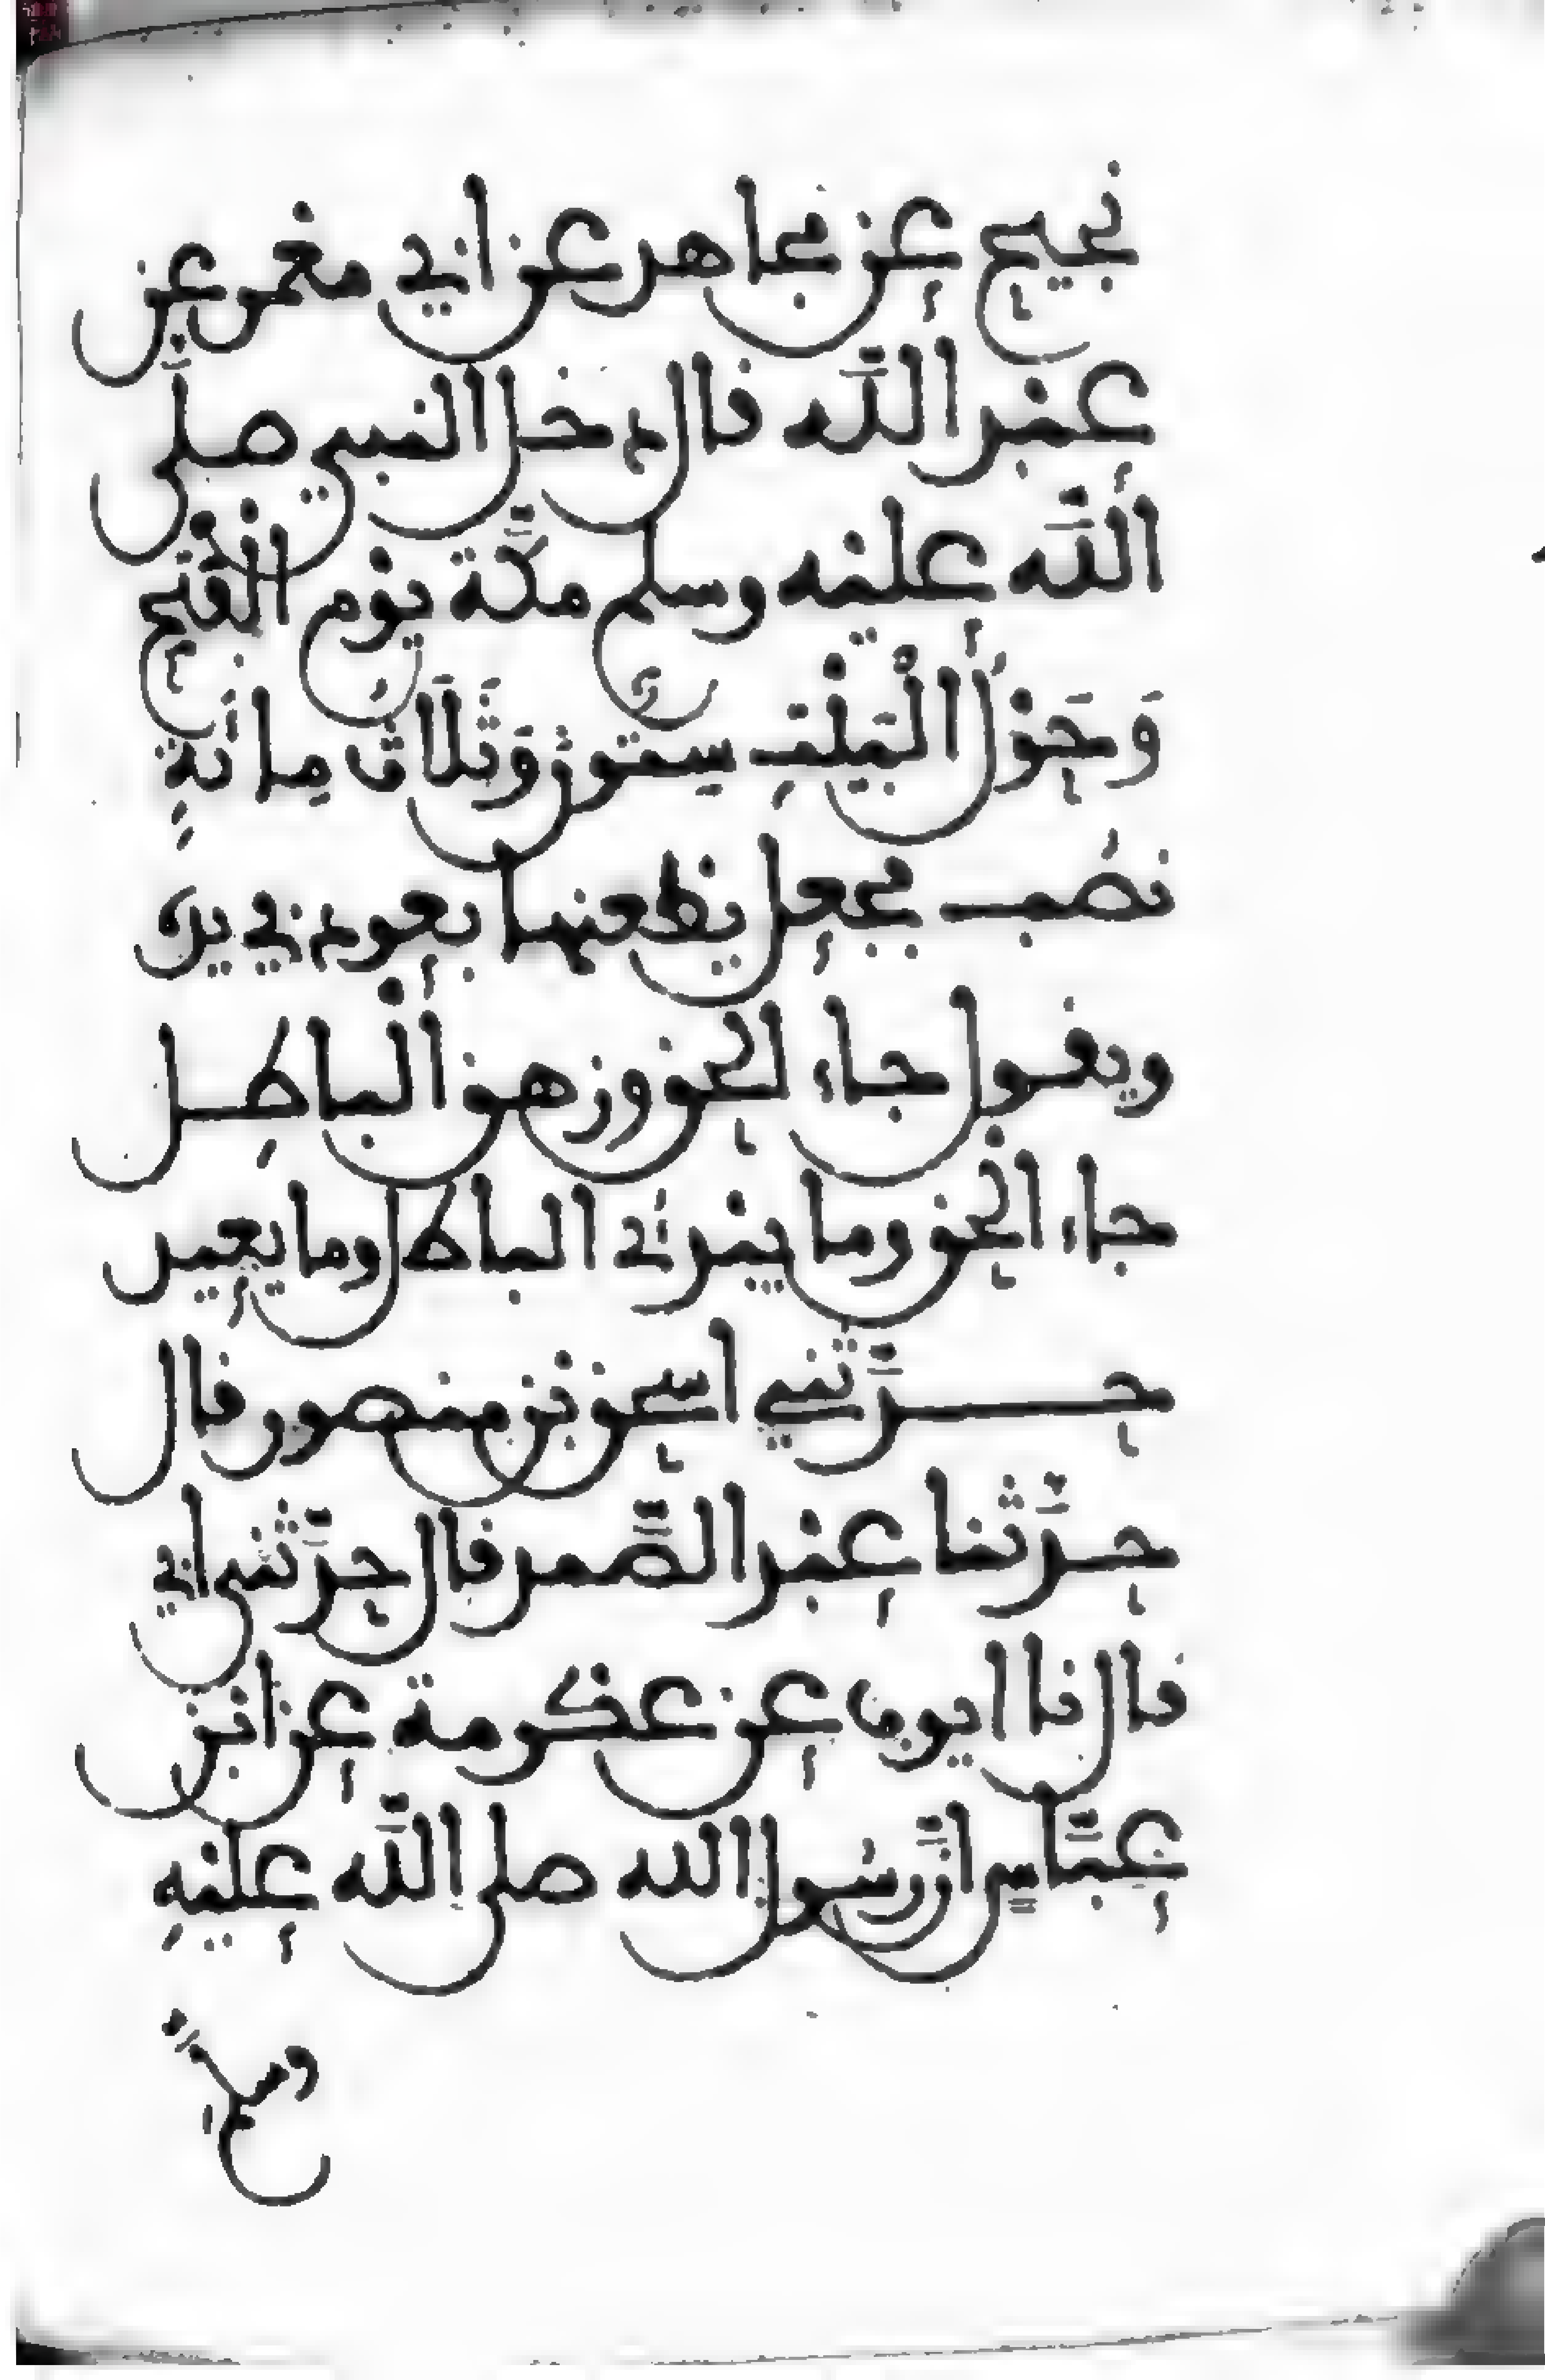 نجيح عن مجاهد عن ابي معمر عن
عبد الله قال دخل النبي صلى
الله عليه وسلم مكة يوم الفتح
وَحَوْلَ الْبَيْتِ سِتون وَثَلَاثُ مِائَةِ
نصُب فجعل يطعنها بعود في يده
ويقول جاء الحق وزهق الْباطِل
جاء الحق وما يبدئ الباطل وما يعيد
حدَّثني اسحق بن منصور قال
حدَّثنا عبد الصَّمد قال حدَّثني ابي
قال نا ايوب عن عكرمة عن ابن
عبَّاسٍ انَّ رسُول الله صلى اللَّه عليهِ
وسلم